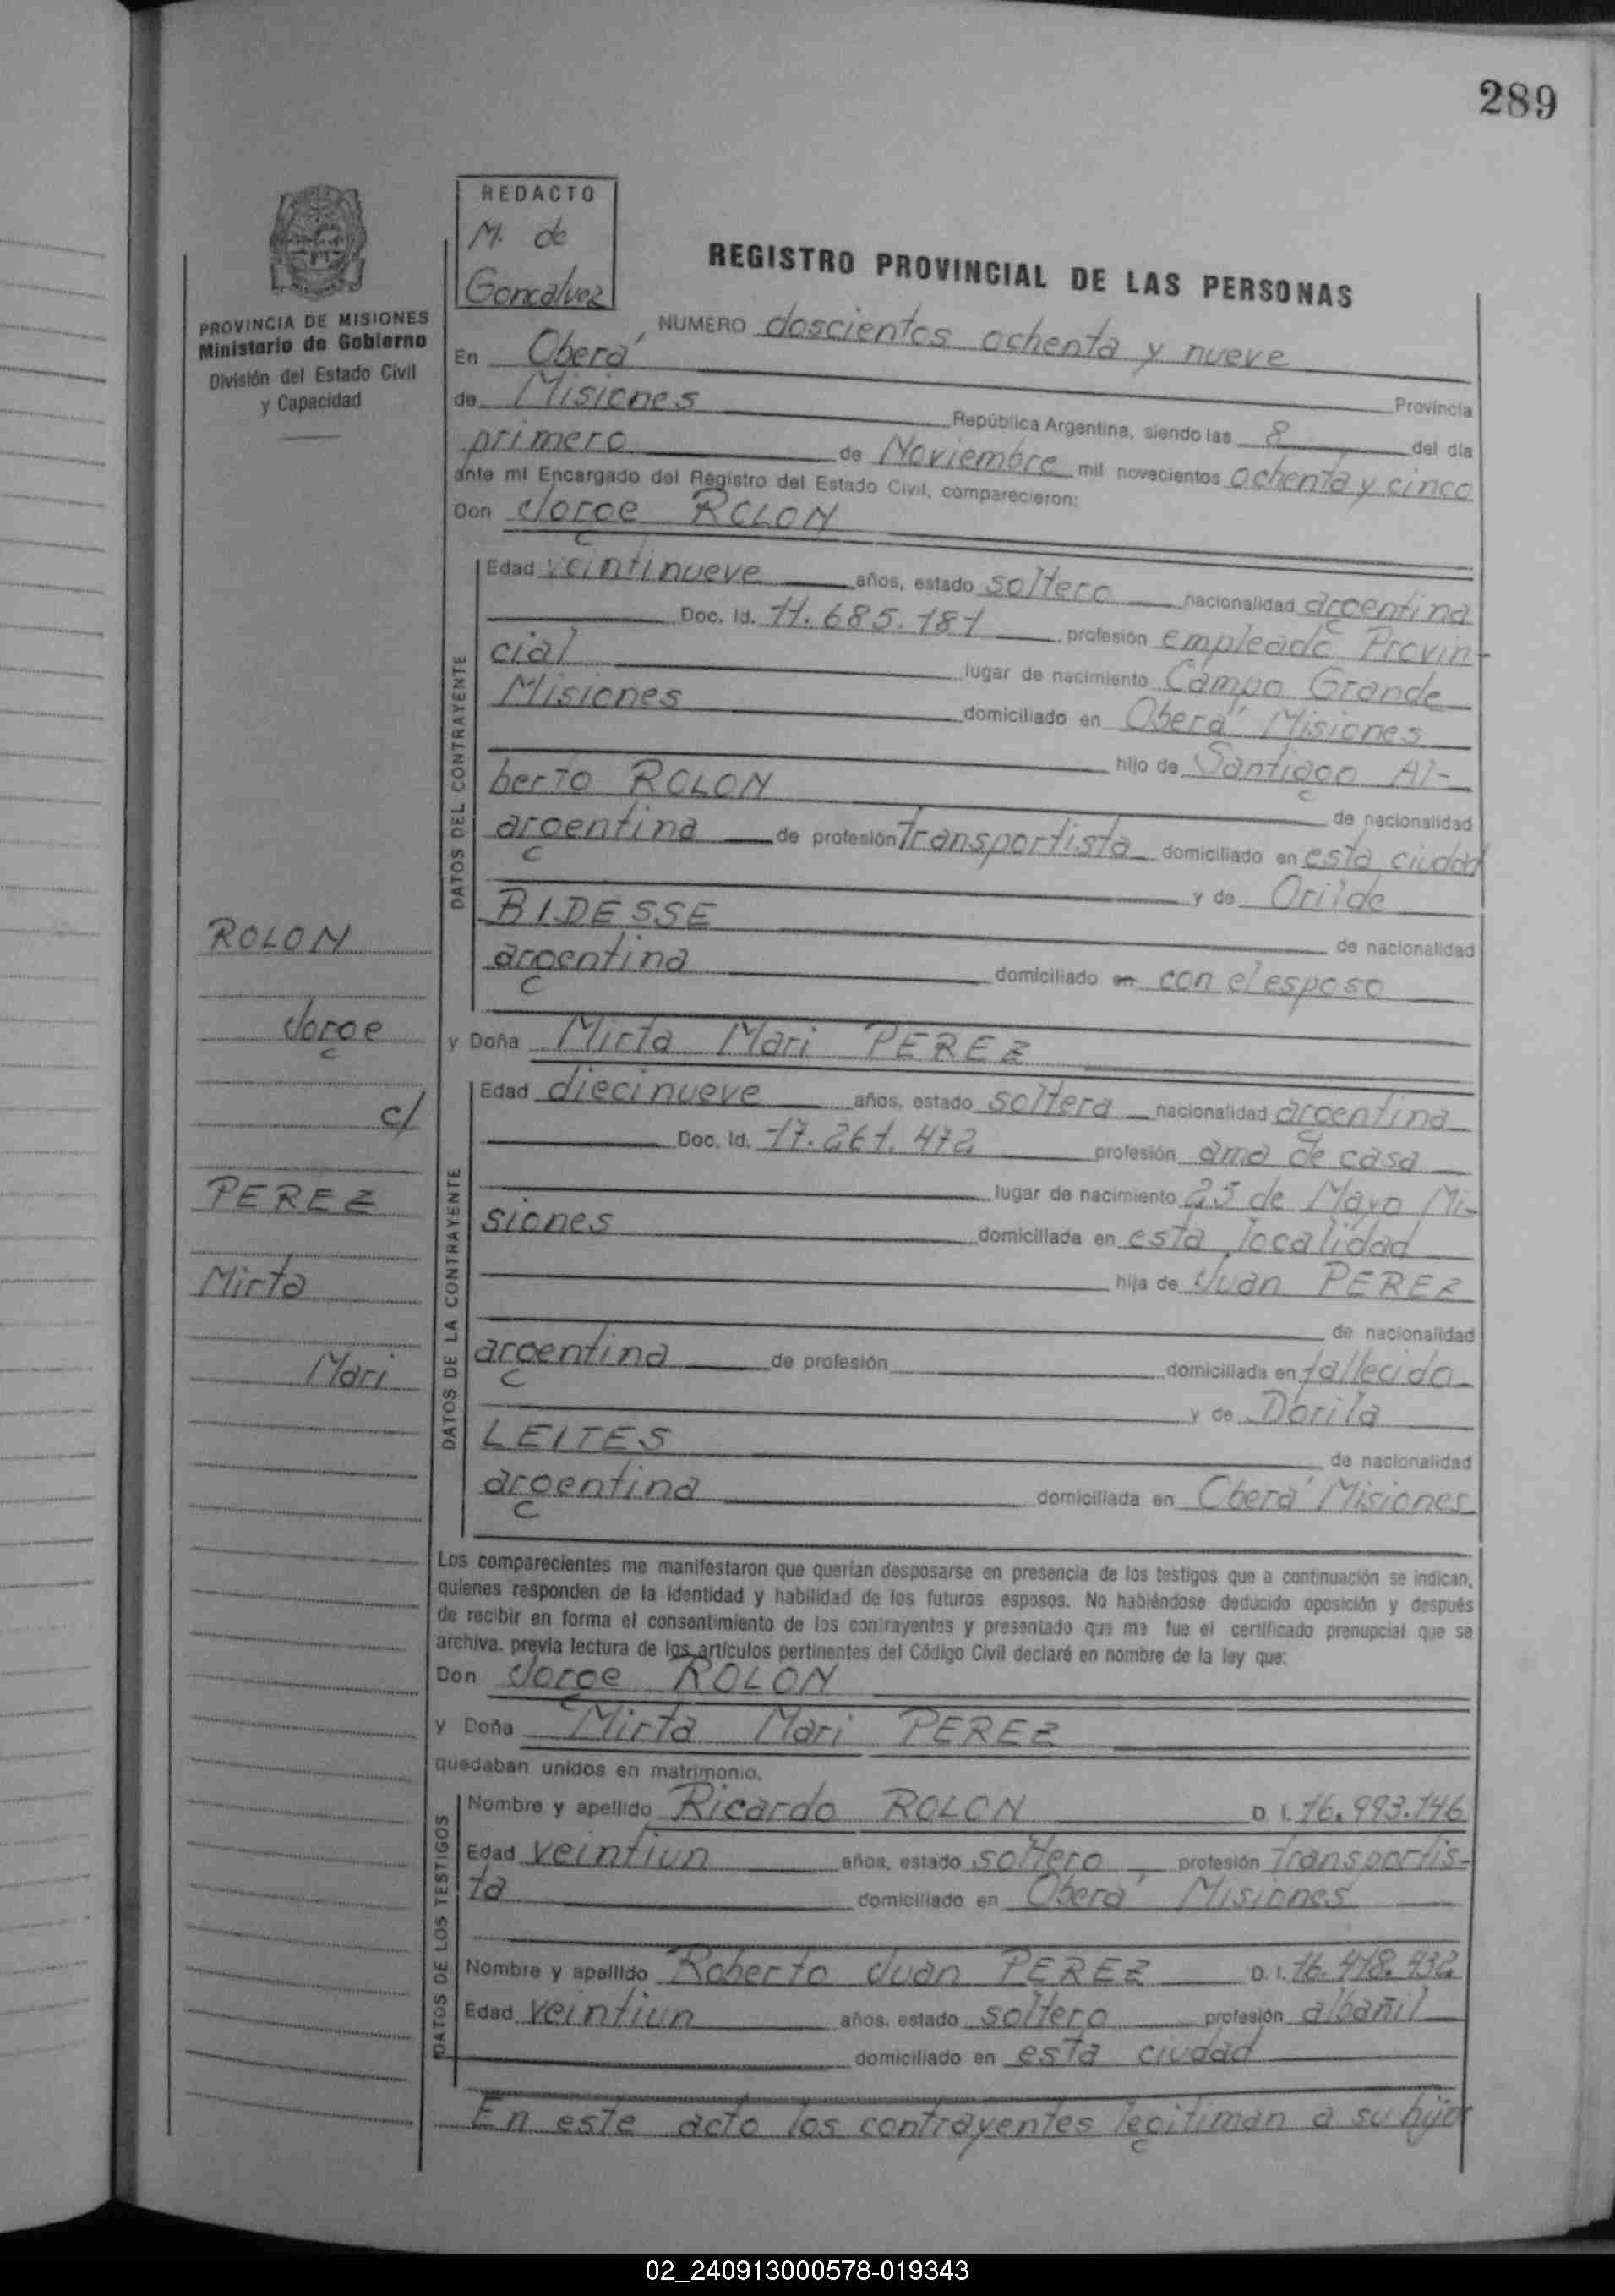 289
REDACTO
M. de
Goncalvez
PROVINCIA DE MISIONES
Ministerio de Gobierno
División del Estado Civil
y Capacidad
REGISTRO PROVINCIAL DE LAS PERSONAS
NUMERO doscientos ochenta y nueve
En Oberá Provincia
de Misiones República Argentina, siendo las 8 del día
primero de Noviembre mil novecientos ochenta y cinco
ante mí Encargado del Registro del Estado Civil, comparecieron:
Don Jorge ROLON
DATOS DEL CONTRAYENTE
Edad veintinueve años, estado soltero nacionalidad argentina
Doc. Id. 11.685.181 profesión empleado Provin-
cial lugar de nacimiento Campo Grande
Misiones domiciliado en Oberá Misiones
hijo de Santiago Al-
berto ROLON de nacionalidad
argentina de profesión Transportista domiciliado en esta ciudad
y de Orilde
BIDESSE de nacionalidad
argentina domiciliado en con el esposo
y Doña Mirta Mari PEREZ
DATOS DE LA CONTRAYENTE
Edad diecinueve años, estado soltera nacionalidad argentina
Doc. Id. 17.261.472 profesión ama de casa
lugar de nacimiento 25 de Mayo Mi-
siones domiciliada en esta localidad
hija de Juan PEREZ
de nacionalidad
argentina de profesión domiciliada en fallecido
y de Dorila
LEITES de nacionalidad
argentina domiciliada en Oberá Misiones
ROLON
Jorge
c/
PEREZ
Mirta
Mari
Los comparecientes me manifestaron que querían desposarse en presencia de los testigos que a continuación se indican,
quienes responden de la identidad y habilidad de los futuros esposos. No habiéndose deducido oposición y después
de recibir en forma el consentimiento de los contrayentes y presentado que me fue el certificado prenupcial que se
archiva. previa lectura de los artículos pertinentes del Código Civil declaré en nombre de la ley que:
Don Jorge ROLON
y Doña Mirta Mari PEREZ
quedaban unidos en matrimonio.
DATOS DE LOS TESTIGOS
Nombre y apellido Ricardo ROLON D. I. 16.993.146
Edad veintiun años, estado soltero profesión Transportis-
ta domiciliado en Oberá Misiones
Nombre y apellido Roberto Juan PEREZ D. I. 16.418.432
Edad veintiun años, estado soltero profesión albañil
domiciliado en esta ciudad
En este acto los contrayentes legitiman a su hijo
02_240913000578-019343